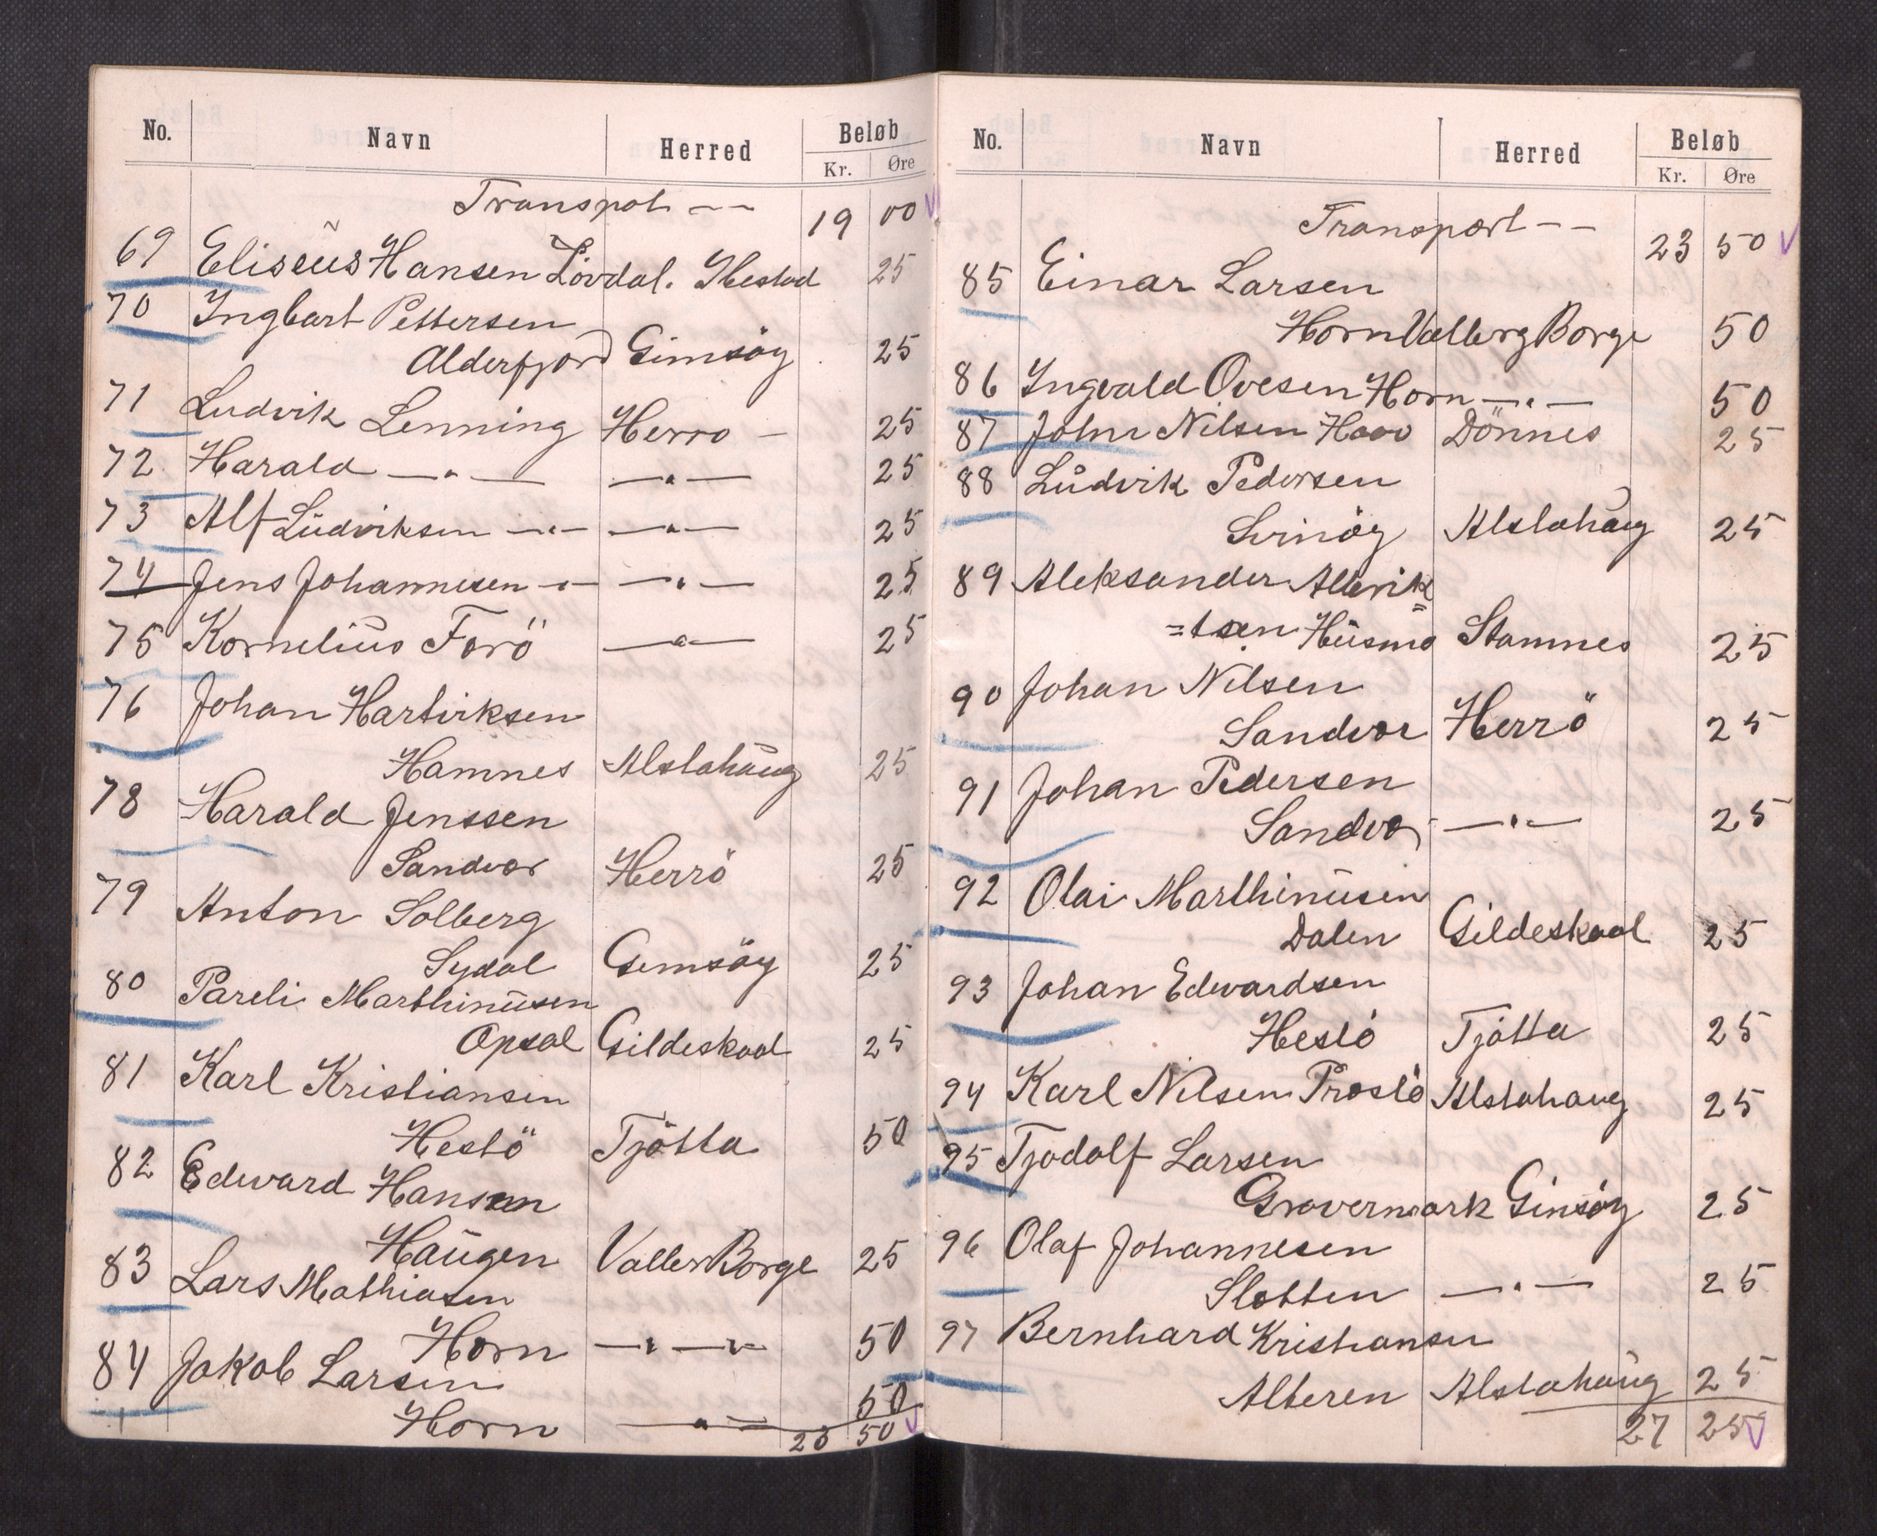 No. Navn Herred Beløb
Kr. Øre
Transpot -- 19 00
69 Eliseüs Hansen Lövdal. Ibestad 25
70 Ingbart Pettersen
Alderfjord Gimsöy 25
71 Ludvik Lenning Herro - 25
72 Harald —"— —"— 25
73 Alf Lüdviksen —"— —"— 25
74 Jens Johannesen —"— —"— 25
75 Korneliüs Forö —"— 25
76 Johan Hartviksen
Hamnes Alstahaüg 25
78 Harald Jenssen
Sandvær Herrö 25
79 Anton Solberg
Sydal Gemsöy 25
80 Pareli Marthinüsen
Opsal Gildeskaal 25
81 Karl Kristiansen
Hestö Tjötta 50
82 Edward Hansen
Haügen Valler Borge 25
83 Lars Mathiasen
Horn —"— —"— 50
84 Jakob Larsen 50
Horn —"— 23 50
No. Navn Herred Beløb
Kr. Øre
Transport -- 23 50
85 Einar Larsen
Horn Valberg Borge 50
86 Ingvald Ovesen Horn —"— 50
87 John Nilsen Haav Dönnes 25
88 Lüdvik Pedersen
Svinöy Alstahaüg 25
89 Aleksander Albrik=
=tsen Hüsmo Stamnes 25
90 Johan Nilsen
Sandvær Herrö 25
91 Johan Pedersen
Sandvæ —"— 25
92 Olai Marthinüsen
Dalen Gildeskaal 25
93 Johan Edvardsen
Hestö Tjötta 25
94 Karl Nilsen Prestö Alstahaug 25
95 Tjodolf Larsen
Gravermark Gimsöy 25
96 Olaf Johannesen
Slotten —"— 25
97 Bernhard Kristiansen
Alteren Alstahaüg 25
27 25